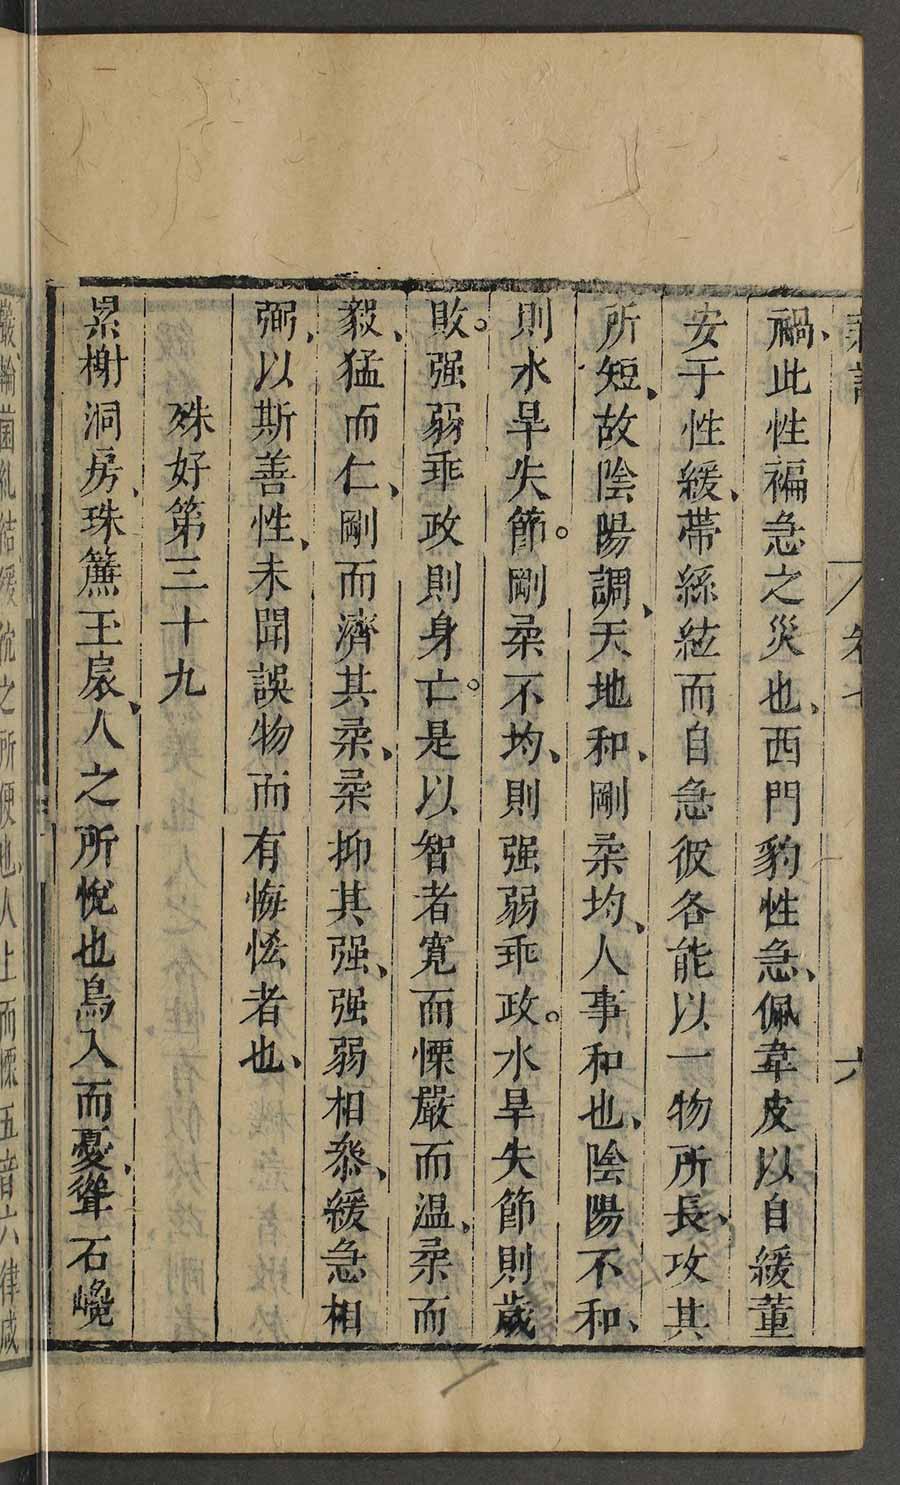 禍、此性褊急之災也、西門豹性急、佩韋皮以自緩董
安于性緩、帶絲絃而自急彼各能以一物所長、攻其
所短、故陰陽調、天地和、剛柔均、人事和也、陰陽不和、
則水旱失節。剛柔不均、則强弱乖政。水旱失節則歲
敗。强弱乖政則身亡。是以智者寬而慄嚴而温、柔而
毅、猛而仁、剛而濟其柔、柔抑其强、强弱相叅、緩急相
弼、以斯善性、未聞誤物而有悔恡者也、
殊好第三十九
累榭洞房、珠簾玉扆、人之所悅也鳥入而憂、聳石巉